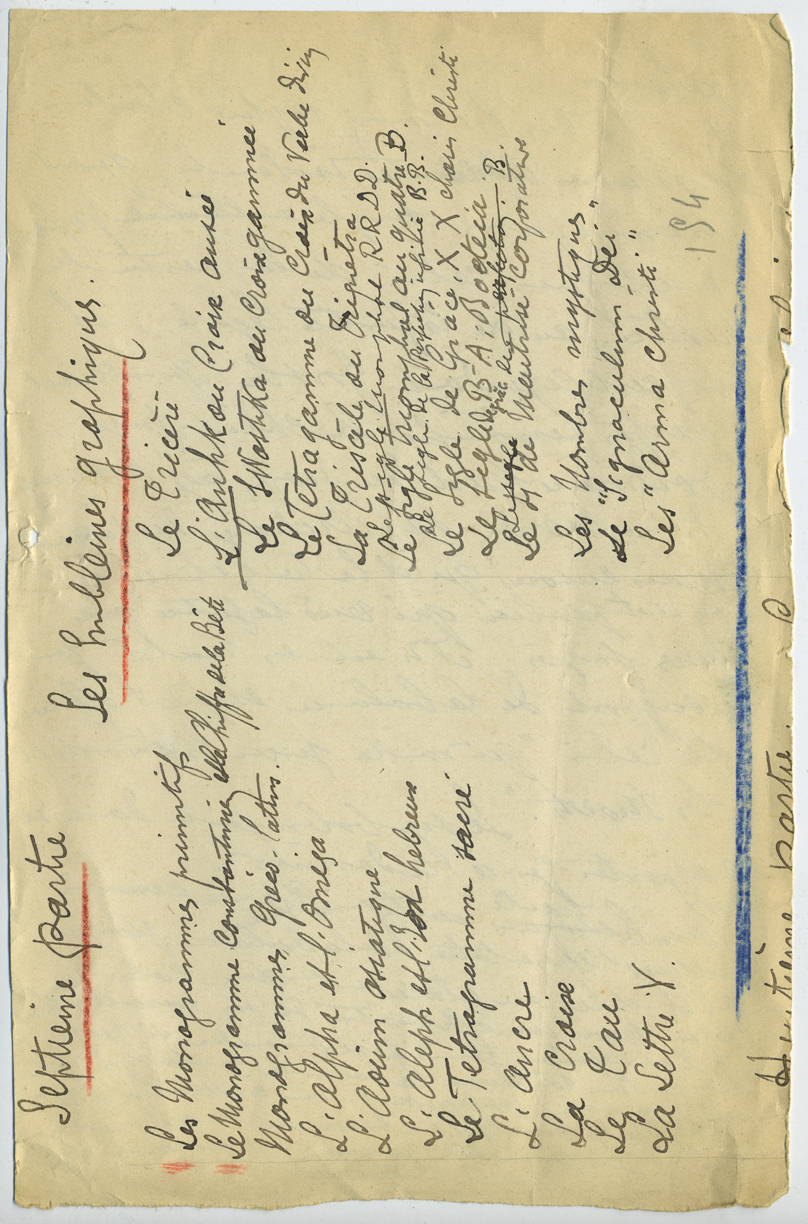 Septième partie
Les Emblèmes graphiques.
Les Monogrammes primitifs
Le Monogramme Constantinien et le Chiffre de la Bête
Monogrammes Gréco-latins.
L'Alpha et l'Oméga
L'Aoum asiatique
L'Aleph et l'Iod hébreux
Le Tetragramme sacré
L'Ancre
La Croix
Le Tau
La Lettre Y.
Le Tricèré
L'Ankh ou Croix ansée
Le Swastika ou Croix gammée
Le Tétragamme ou Croix du Verbe divin
La Triscèle ou Triquetra
Le sigle R R D D.
Le Sigle nomphal au quatre B.
Le Sigle de la B. B.
Le Sigle de Grâce, X X charis Christi
Le Sigle B-A; Boeteia
Le 4 de Meutrise Corporative
Les Nombres mystiques.
Le "Signaculum Dei"
Les "Arma Christi"
194
Huitième partie.